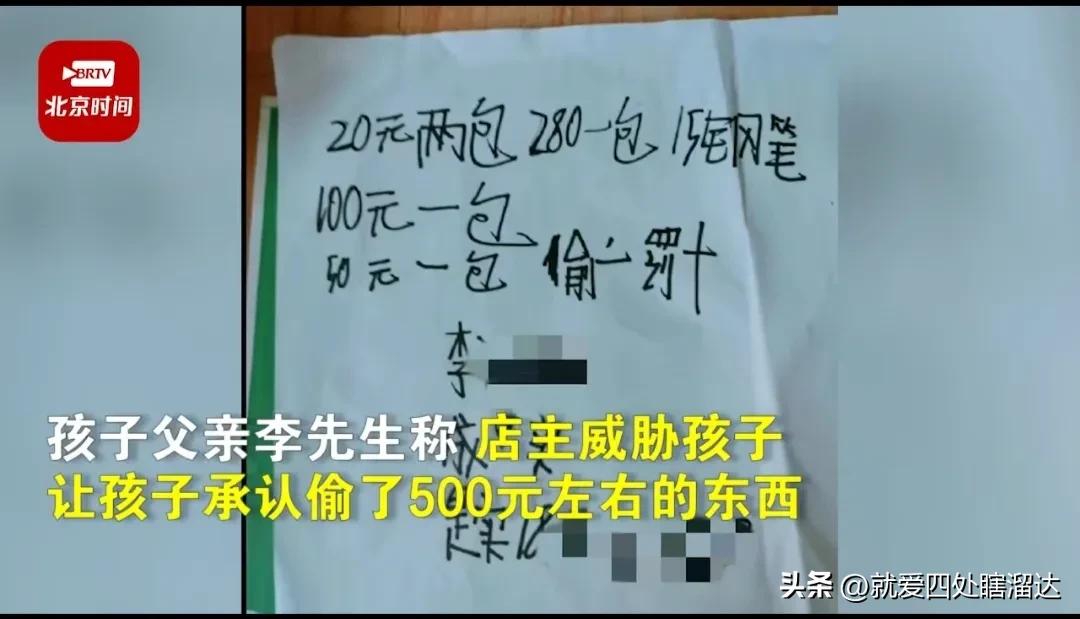 BRTV
北京时间
20元两包 280一包 15钢笔
100元一包
50元一包 偷一罚十
李
孩子父亲李先生称 店主威胁孩子
让孩子承认偷了500元左右的东西
头条 @就爱四处瞎溜达